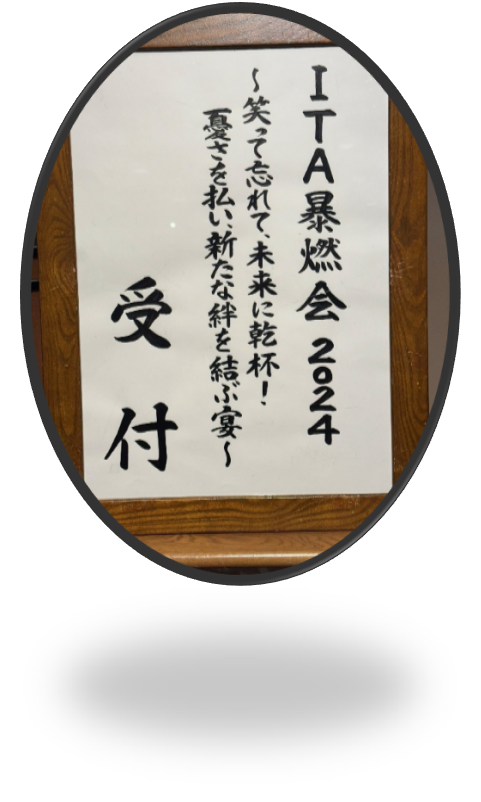 ITA暴燃会 2024
~笑って忘れて、未来に乾杯!
憂さを払い、新たな絆を結ぶ宴~
受付